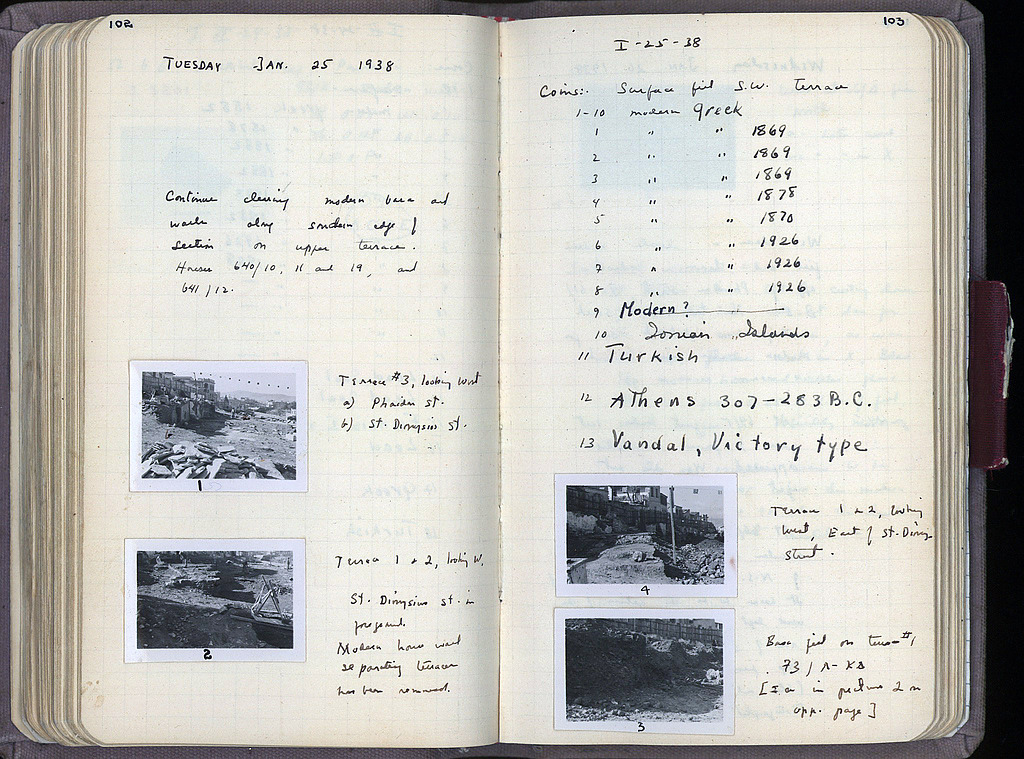 102
TUESDAY JAN. 25 1938
Continue clearing modern base and
walls along southern edge of
section on upper terrace.
Houses 640/10, 11 and 19, and
641/12.
Terrace #3, looking west
a) Phaidra st.
b) St. Dionysius st.
1
Terrace 1 & 2, looking W.
St. Dionysius st. in
foreground.
Modern house wall
separating terraces
has been removed.
2
103
I-25-38
Coins:. Surface fill S.W. terrace
1-10 modern Greek
1 " " 1869
2 " " 1869
3 " " 1869
4 " " 1878
5 " " 1870
6 " " 1926
7 " " 1926
8 " " 1926
9 Modern?
10 Ionian Islands
11 Turkish
12 Athens 307-283 B.C.
13 Vandal, Victory type
Terrace 1 & 2, looking
west, East of St. Diony.
street.
4
fill on #1
73/
[ in picture 2 on
opp. page]
3